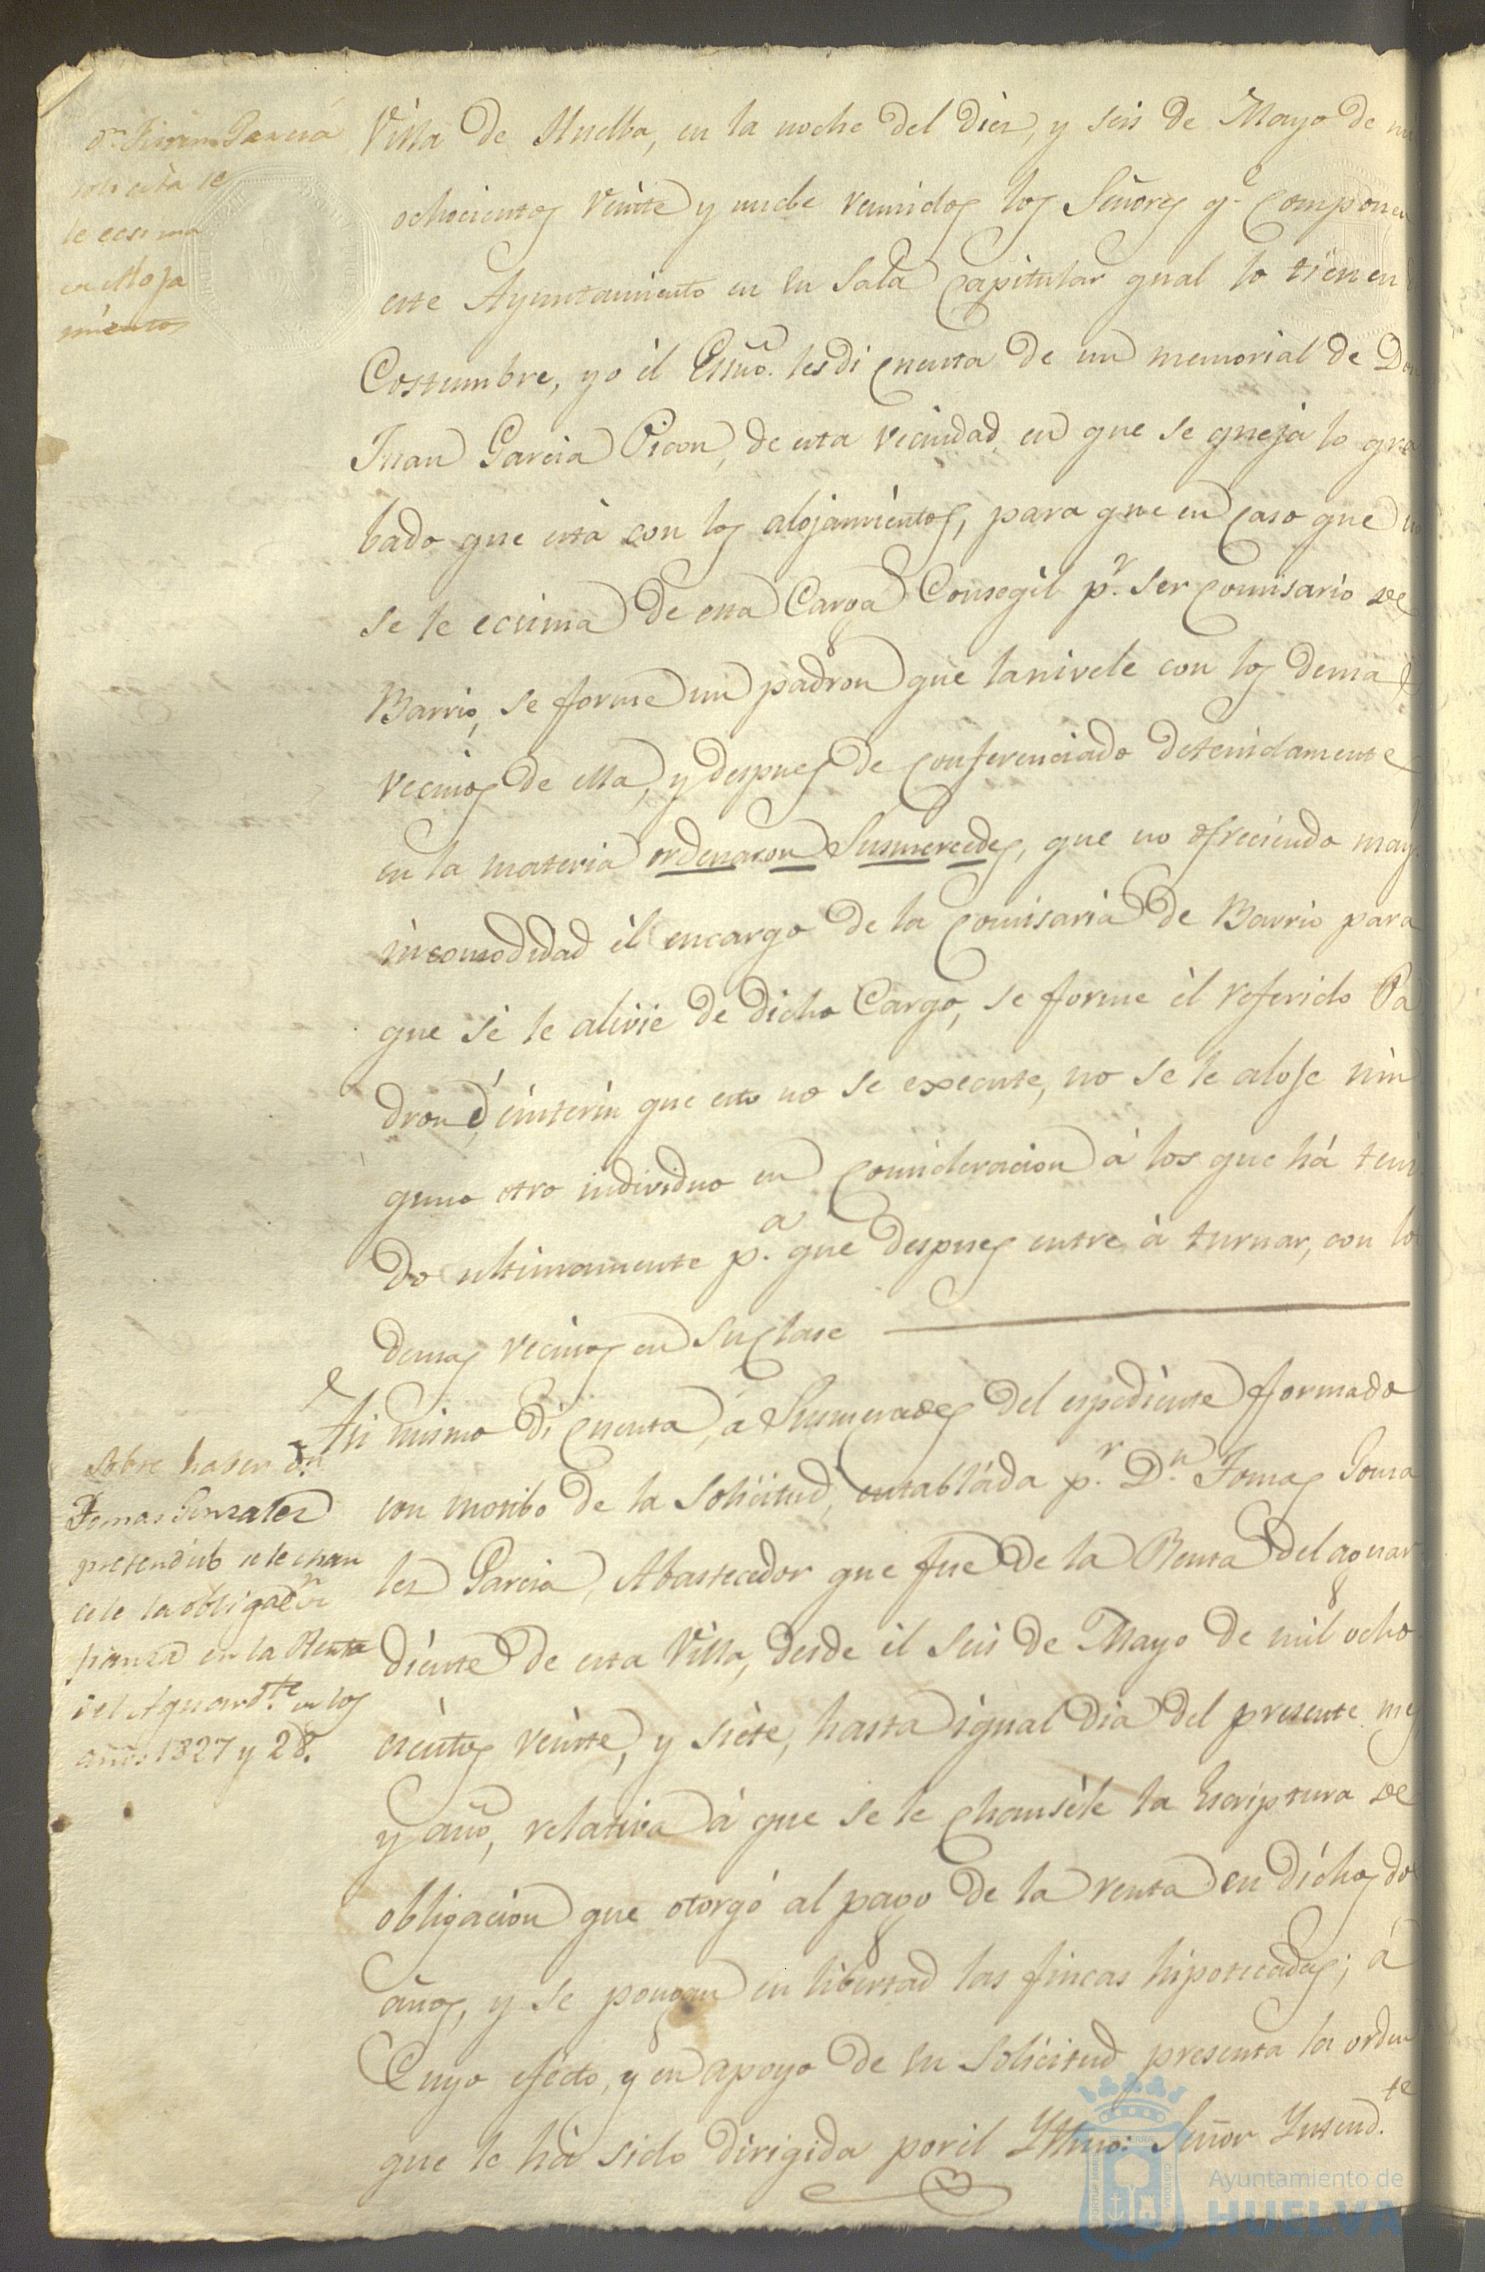 Dn Juan García
solicita se
le ecsima
de Aloja
mientos
Villa de Huelba, en la noche del diez, y seis de Mayo de
ochocientos veinte y nuebe reunidos los Señores qe componen
este Ayuntamiento en su Sala Capitular qual lo tienen
Costumbre, yo él Essno. les di cuenta de un memorial de Don
Juan Garcia Picon, de esta vecindad en que se queja lo gra
bado que está con los alojamientos, para que en caso que no
se le ecsima de esa Carga Consegìl pr. ser Comisario de
Barrio, se forme un padron que lo nivele con los demas
vecinos de ella, y despues de conferenciado detenidamente
en la materia ordenaron Susmercedes, que no ofreciendo mayr
incomodidad él encargo de la Comisaria de Barrio para
que se le alivie de dicho Cargo, se forme él referido Pa
dron é ínterin que esto no se execute, no se le aloje nin
guno otro individuo en Consideracion á los que há teni
do ultimamente pa. que despues entre á turnar, con lo
demas vecinos en su clase
Asi mismo di cuenta, á Susmercedes del espediente formado
con motibo de la Solicitud, entablada pr. Dn Tomas Gonsa
les Garcia, Abastecedor que fue de la Renta del aguar
diente de esta Villa, desde él seis de Mayo de mil ocho
cientos veinte, y siete, hasta igual dia del presente mes
y año, relativa á que se le chansele la Escriptura de
obligacion que otorgó al pago de la renta en dichos dos
años, y se pongan en libertad las fincas hipotecadas; á
Cuyo efecto, y en apoyo de su Solicitud presenta la orden
que le há sido dirigida por él Yllmo. Señor Yntendte
Sobre haber Dn
Tomas Gonzales
pretendido se le chan
cele la obligacn
fianza en la Renta
del Aguardte en los
años 1827 y 28.
Ayuntamiento de
HUELVA